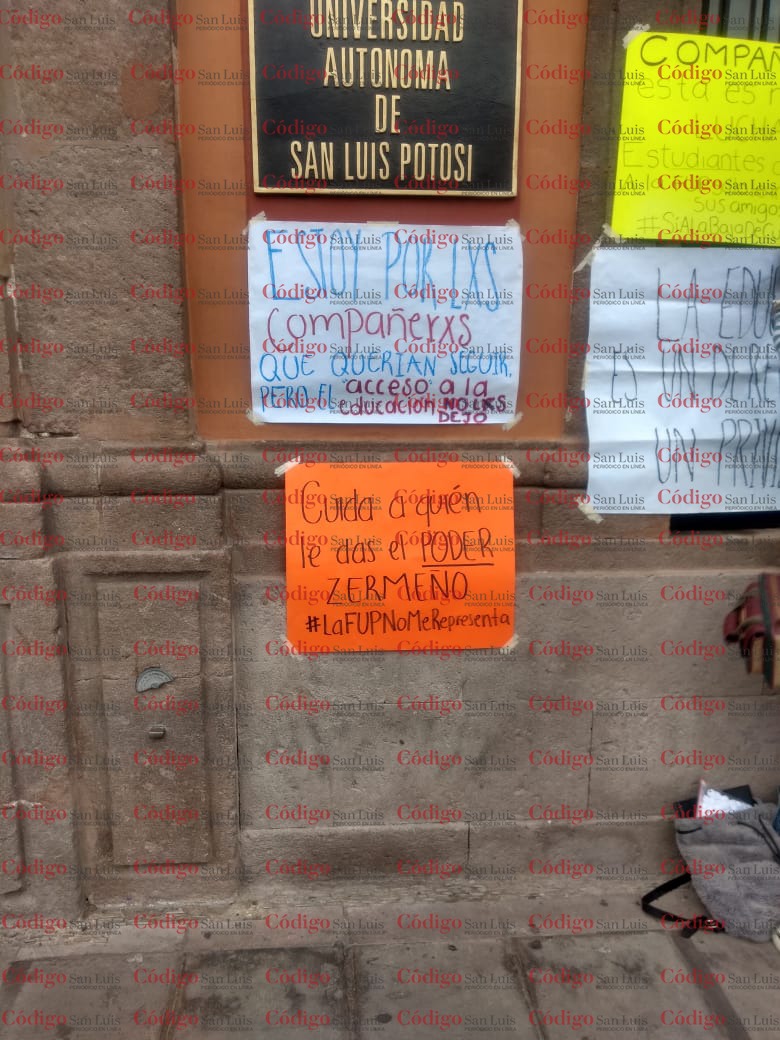 UNIVERSIDAD
AUTONOMA
DE
SAN LUIS POTOSI
ESTOY POR LXS
Compañerxs
QUE QUERÍAN SEGUIR,
PERO EL "acceso" a la
educación NO LXS
DEJÓ
Cuida a quién
le das el PODER
ZERMEÑO
#LaFUPNoMeRepresenta
COMPAÑ
esta es
Estudiantes
A la
sus amigo
#SiALaBajaDeCu
LA EDU
ES UN DERE
UN PRIVI
Código San Luis
PERIÓDICO EN LÍNEA